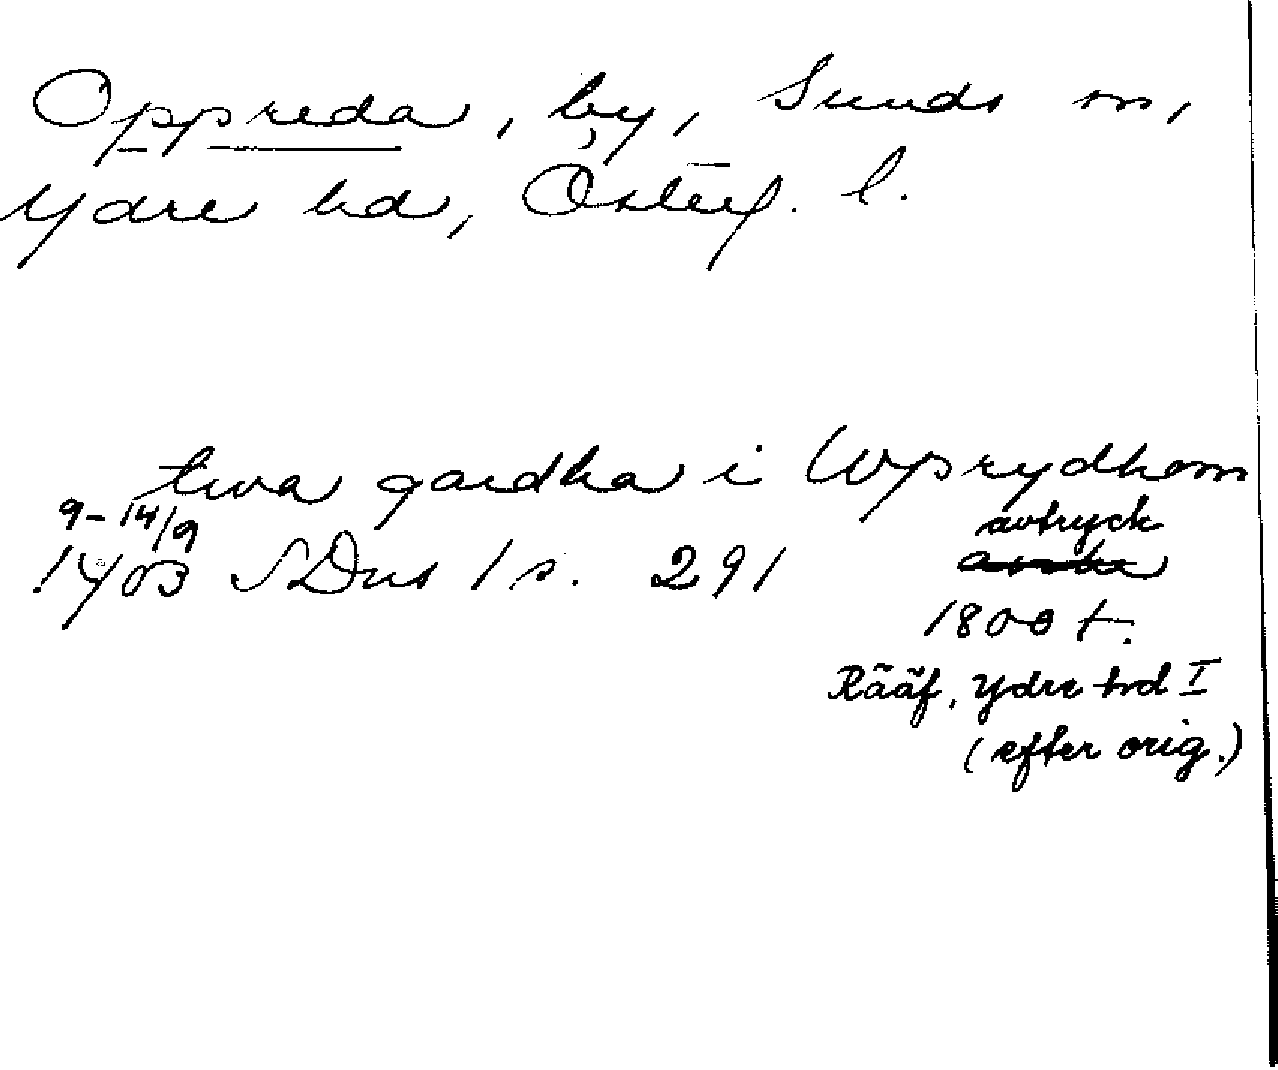 Oppreda, by, Sunds sn,
Ydre hd, Österg. l.
twa gardha i Wprydhom
9-14/9
1403 SDns 1 s. 291
avtryck
1800 t.
Rääf, Ydre hrd I
(efter orig.)